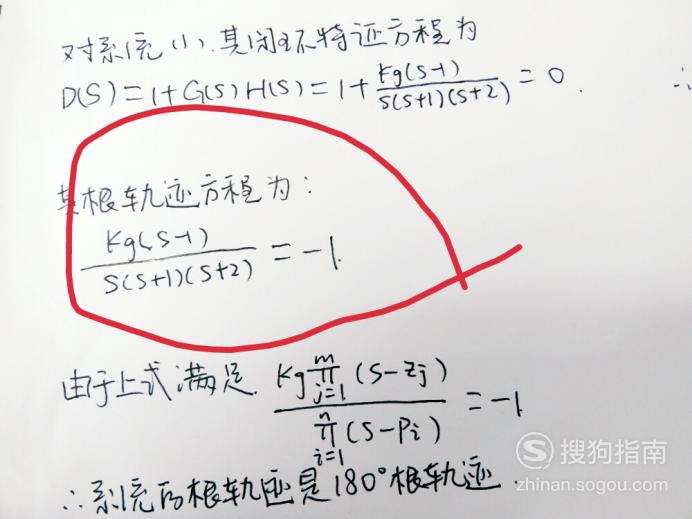 对系统(1).其闭环特证方程为
D(S)=1+G(S)H(S)=1+\frac{Kg(S-1)}{S(S+1)(S+2)}=0.
∴
其根轨迹方程为:
\frac{Kg(S-1)}{S(S+1)(S+2)}=-1.
由于上式满足. \frac{Kg\prod_{j=1}^{m}(S-Zj)}{\prod_{i=1}^{n}(S-Pi)}=-1
∴系统的根轨迹是180°根轨迹.
S 搜狗指南
zhinan.sogou.com